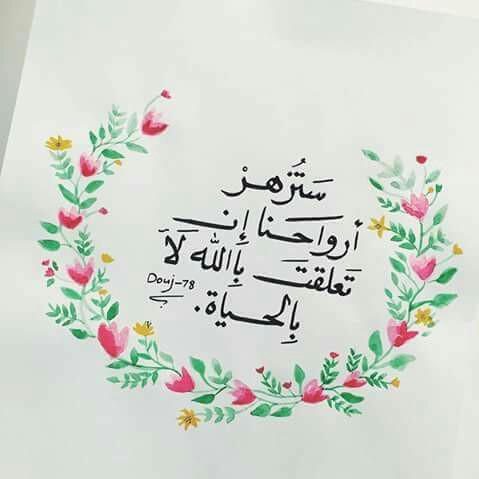 سَتُزهرْ
أرواحنا إن
تَعلقتَ بِاالله لَا
بِالحياة.
Douj-78